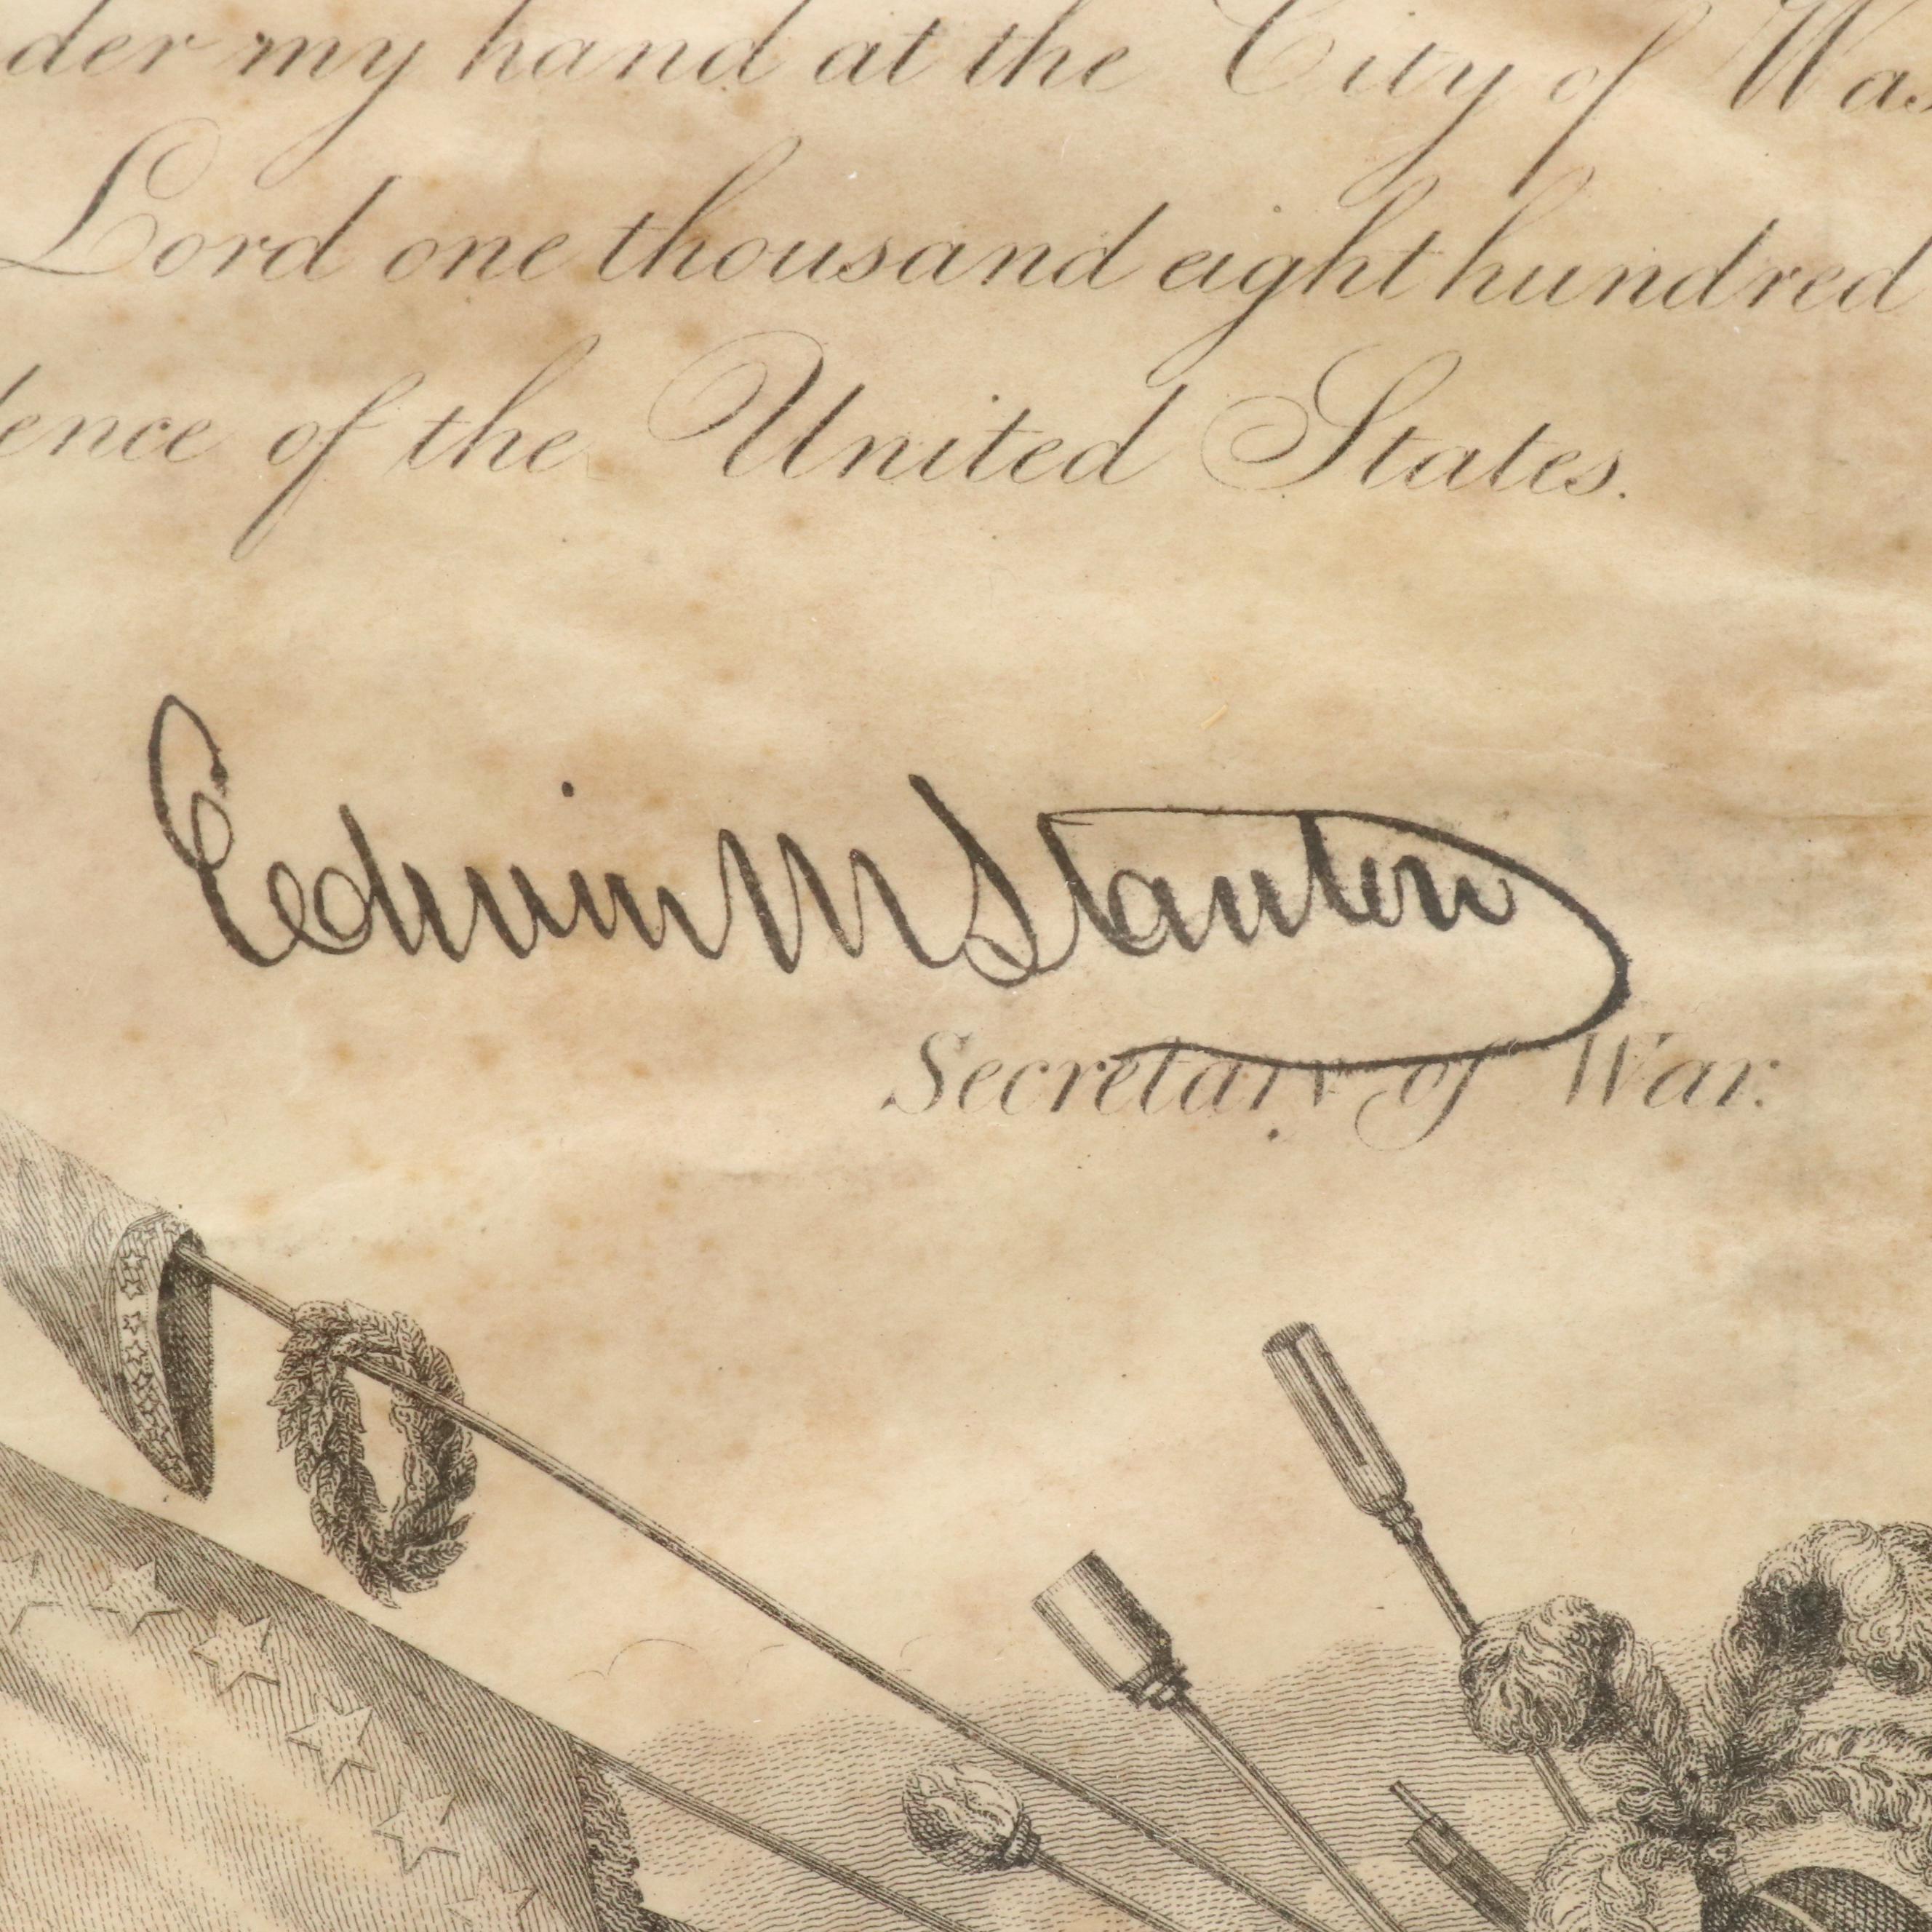 der my hand at the City of Was
Lord one thousand eight hundred
dence of the United States.
Edwin M Stanton
Secretary of War.